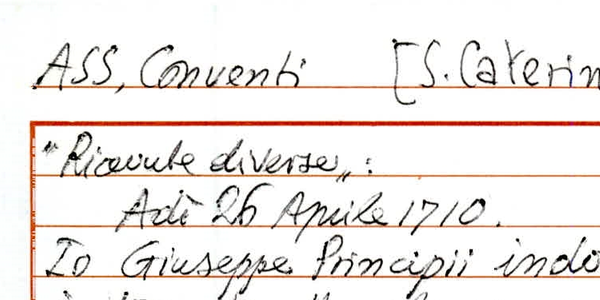 ASS, Conventi [S. Caterin
"Ricevute diverse„:
Adì 26 Aprile 1710.
Io Giuseppe Principii indo